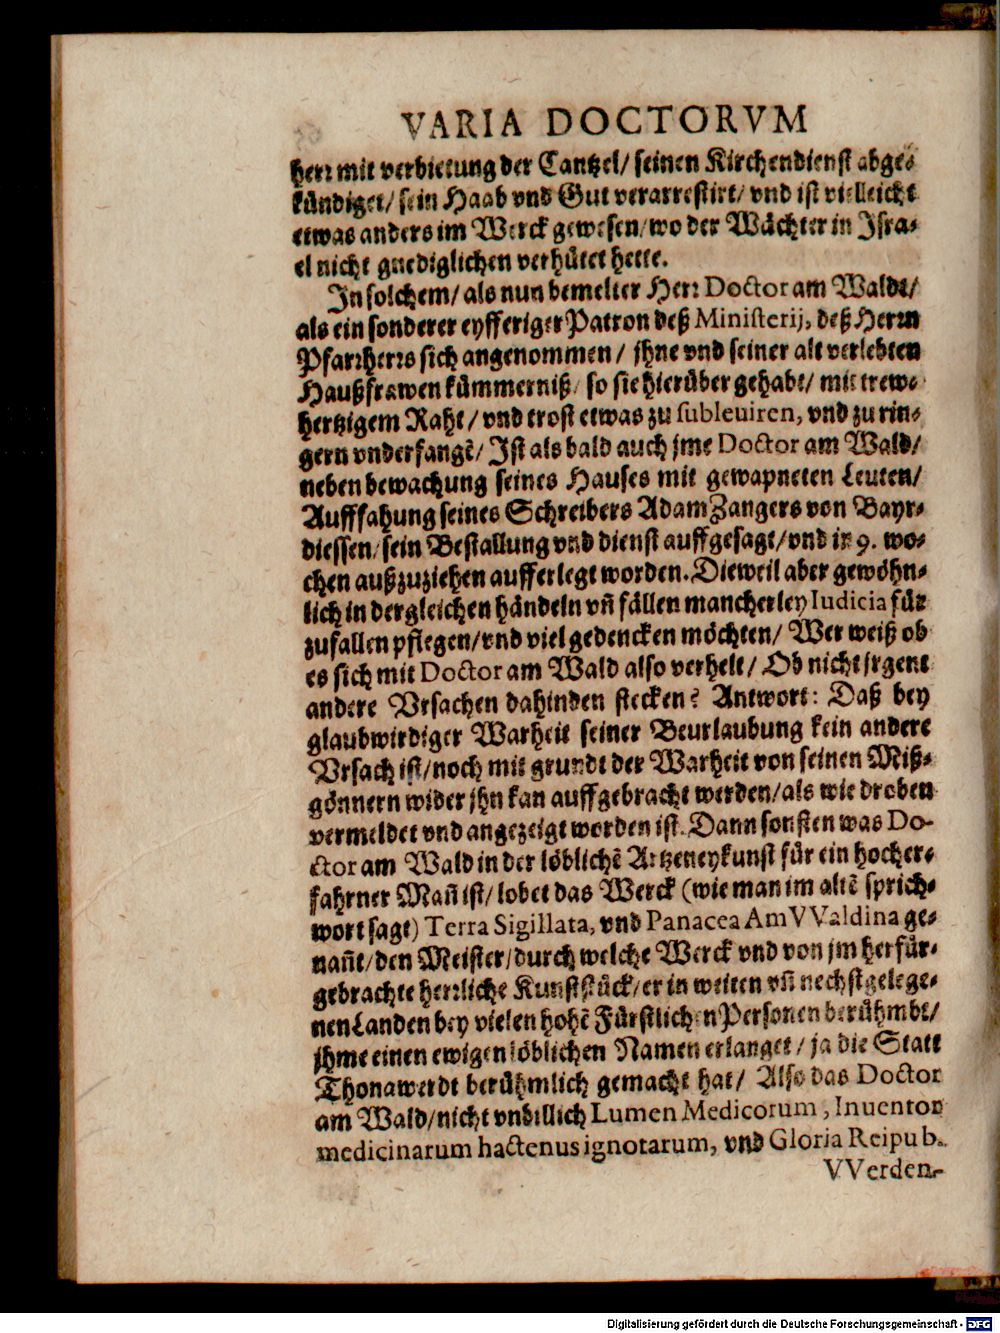 VARIA DOCTORVM
herr mit verbietung der Cantzel/ seinen Kirchendienst abge-
kündiget/ sein Haab vnd Gut verarrestirt/ vnd ist vielleicht
etwas anders im Werck gewesen/ wo der Wächter in Isra-
el nicht gnediglichen verhütet hette.
In solchem/ als nun bemelter Herr Doctor am Waldt/
als ein sonderer eyfferiger Patron deß Ministerij, deß Herrn
Pfarrherrs sich angenommen/ jhne vnd seiner alt verlebten
Haußfrawen kümmerniß/ so sie hierüber gehabt/ mit trew-
hertzigem Raht/ vnd trost etwas zu subleuiren, vnd zu rin-
gern vnderfangẽ/ Ist als bald auch jme Doctor am Wald/
neben bewachung seines Hauses mit gewapneten Leuten/
Aufffahung seines Schreibers Adam Zangers von Bayr-
diessen/ sein Bestallung vnd dienst auffgesagt/ vnd in 9. wo-
chen außzuziehen aufferlegt worden. Dieweil aber gewöhn-
lich in dergleichen händeln vñ fällen mancherley Iudicia für
zufallen pflegen/ vnd viel gedencken möchten/ Wer weiß ob
es sich mit Doctor am Wald also verhelt/ Ob nicht jrgent
andere Vrsachen dahinden stecken? Antwort: Daß bey
glaubwirdiger Warheit seiner Beurlaubung kein andere
Vrsach ist/ noch mit grundt der Warheit von seinen Miß-
gönnern wider jhn kan auffgebracht werden/ als wie droben
vermeldet vnd angezeigt worden ist. Dann sonsten was Do-
ctor am Wald in der löblichẽ Artzeneykunst für ein hocher-
fahrner Mañ ist/ lobet das Werck (wie man im altẽ sprich-
wort sagt) Terra Sigillata, vnd Panacea AmVValdina ge-
nañt/ den Meister/ durch welche Werck vnd von jm herfür-
gebrachte herrliche Kunststück/ er in weiten vñ nechstgelege-
nen Landen bey vielen hohẽ Fürstlichen Personen berühmbt/
jhme einen ewigen löblichen Namen erlanget/ ja die Statt
Thonawerdt berühmlich gemacht hat/ Also das Doctor
am Wald/ nicht vnbillich Lumen Medicorum, Inuentor
medicinarum hactenus ignotarum, vnd Gloria Reipub.
VVerden-
Digitalisierung gefördert durch die Deutsche Forschungsgemeinschaft - DFG